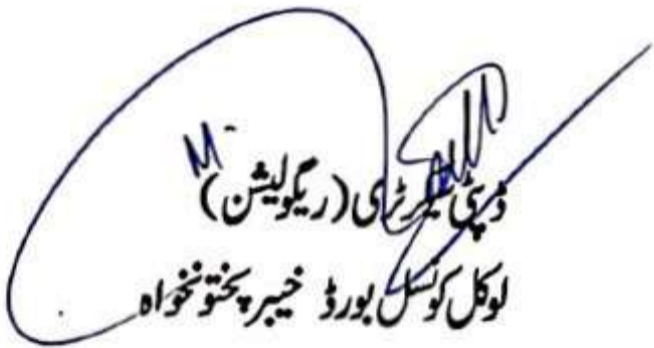 ڈپٹی سیکرٹری (ریگولیشن)
لوکل کونسل بورڈ خیبر پختونخواہ